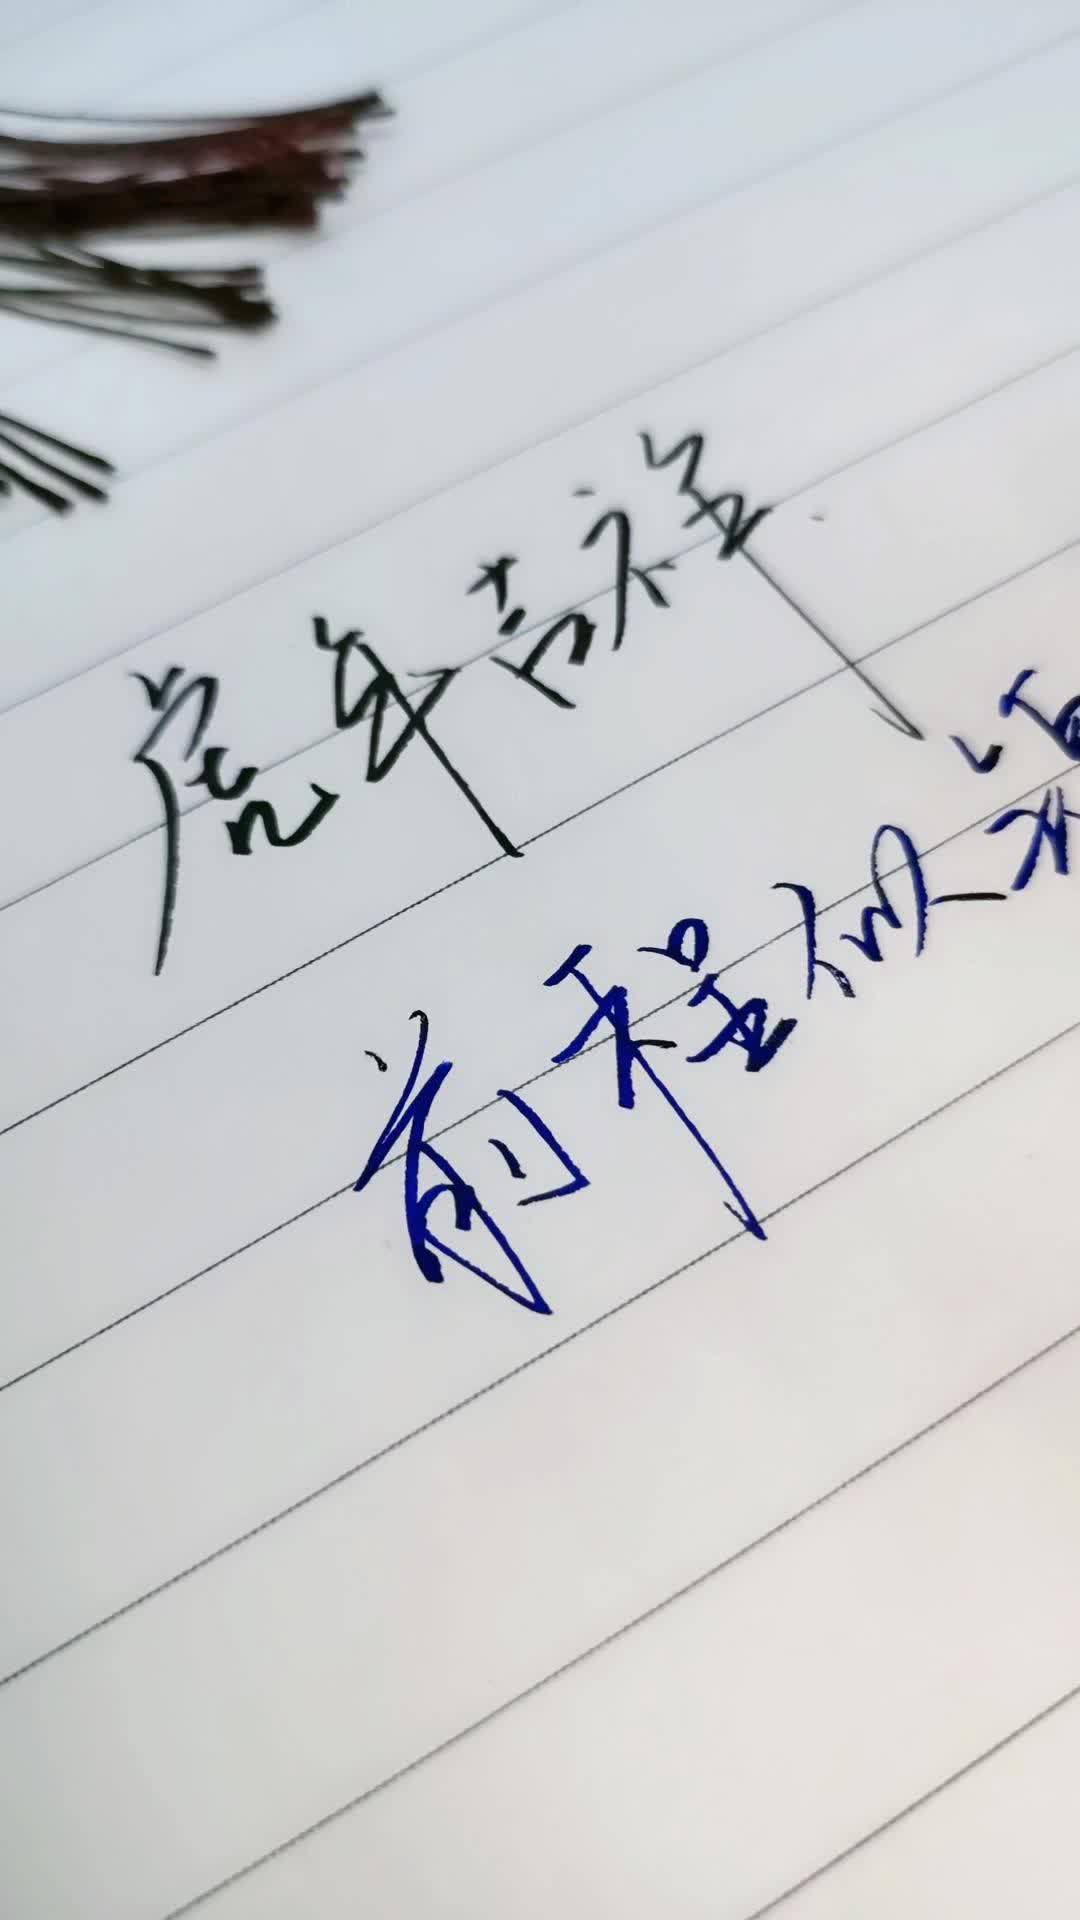 虎年吉祥
前程似